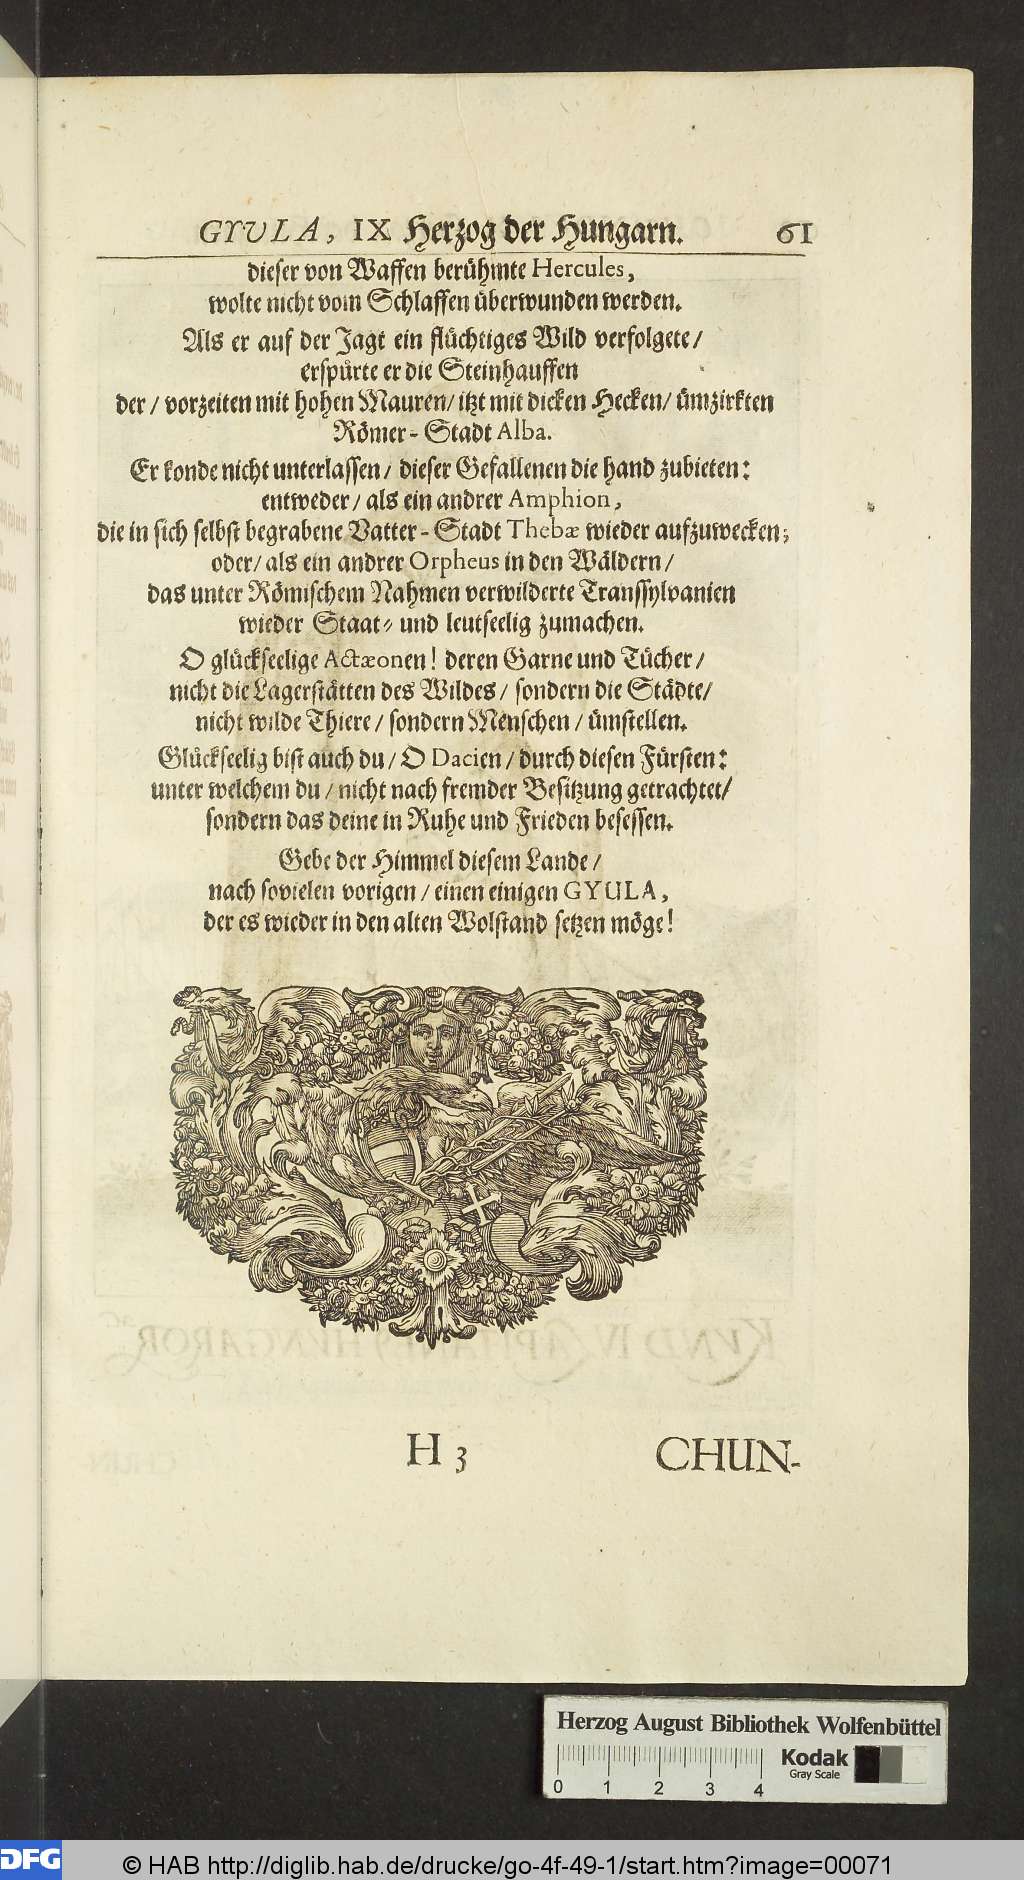 GYULA, IX Herzog der Hungarn. 61
dieser von Waffen berühmte Hercules,
wolte nicht vom Schlaffen überwunden werden.
Als er auf der Jagt ein flüchtiges Wild verfolgete/
erspürte er die Steinhauffen
der/ vorzeiten mit hohen Mauren/ itzt mit dicken Hecken/ ümzirkten
Römer-Stadt Alba.
Er konde nicht unterlassen/ dieser Gefallenen die hand zubieten:
entweder/ als ein andrer Amphion,
die in sich selbst begrabene Vatter-Stadt Thebæ wieder aufzuwecken;
oder/ als ein andrer Orpheus in den Wäldern/
das unter Römischem Nahmen verwilderte Transsylvanien
wieder Staat- und leutseelig zumachen.
O glückseelige Actæonen! deren Garne und Tücher/
nicht die Lagerstätten des Wildes/ sondern die Städte/
nicht wilde Thiere/ sondern Menschen/ ümstellen.
Glückseelig bist auch du/ O Dacien/ durch diesen Fürsten:
unter welchem du/ nicht nach fremder Besitzung getrachtet/
sondern das deine in Ruhe und Frieden besessen.
Gebe der Himmel diesem Lande/
nach sovielen vorigen/ einen einigen GYULA,
der es wieder in den alten Wolstand setzen möge!
H 3 CHUN-
Herzog August Bibliothek Wolfenbüttel
0 1 2 3 4
Kodak
Gray Scale
DFG
© HAB http://diglib.hab.de/drucke/go-4f-49-1/start.htm?image=00071